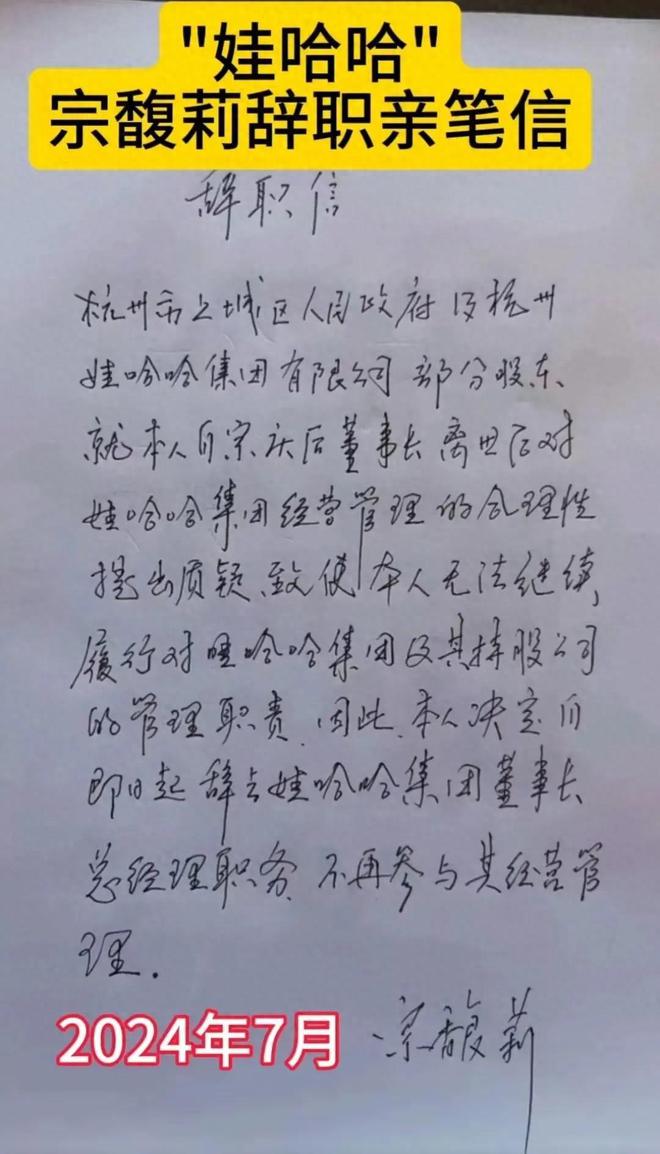 "娃哈哈"
宗馥莉辞职亲笔信
辞职信
杭州市上城区人民政府及杭州
娃哈哈集团有限公司部分股东、
就本人自宗庆后董事长离世后对
娃哈哈集团经营管理的合理性
提出质疑、致使本人无法继续,
履行对哇哈哈集团及其持股公司
的管理职责、因此、本人决定自
即日起辞去娃哈哈集团董事长
总经理职务、不再参与其经营管
理.
2024年7月
宗馥莉